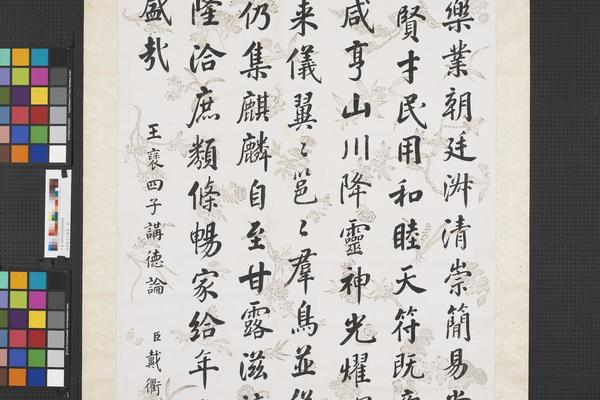 樂業朝廷淑清崇簡易尚
賢才民用和睦天符既章
咸亨山川降靈神光耀
来儀翼〻邕〻羣鳥並從
仍集麒麟自至甘露滋液
隆洽庶類條暢家給年
盛哉
王褒四子講德論 臣戴衢